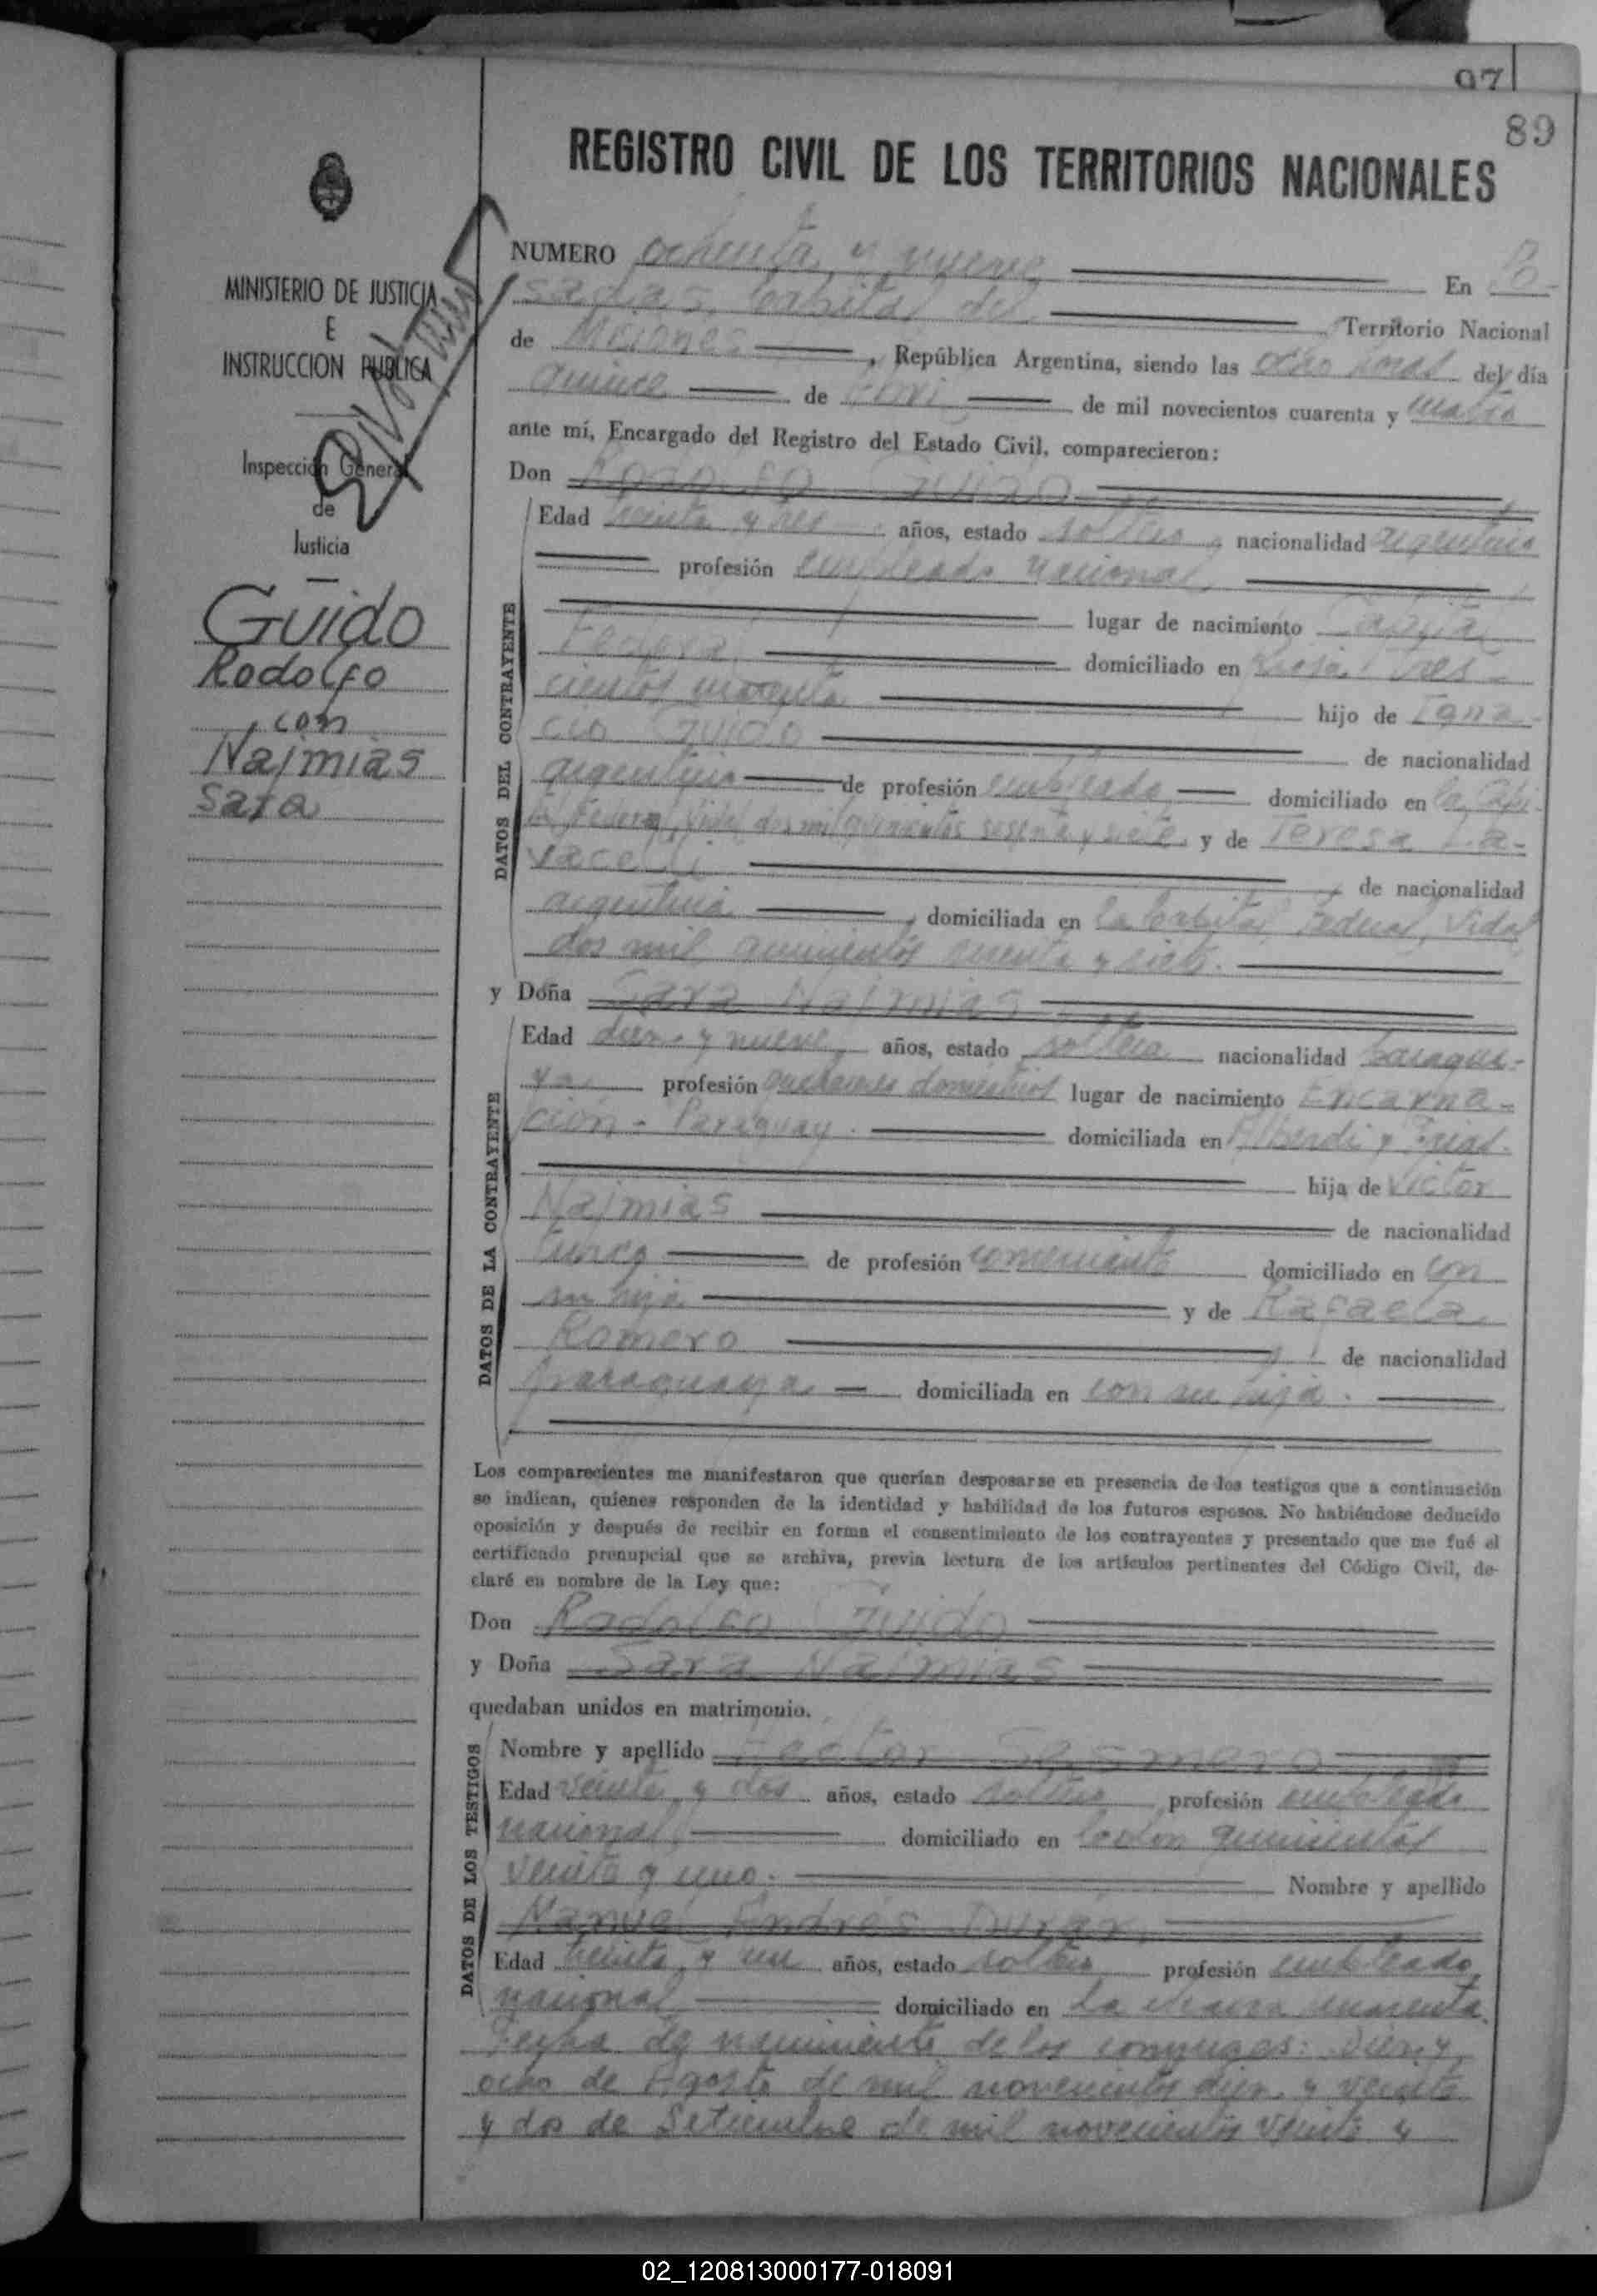 97
89
REGISTRO CIVIL DE LOS TERRITORIOS NACIONALES
MINISTERIO DE JUSTICIA
E
INSTRUCCION PUBLICA
Inspección General
de
Justicia
Guido
Rodolfo
con
Najmias
Sara
NUMERO ochenta y nueve En Po-
sadas, Capital del Territorio Nacional
de Misiones, República Argentina, siendo las ocho horas del día
quince de de mil novecientos cuarenta y cuatro
ante mí, Encargado del Registro del Estado Civil, comparecieron:
Don Rodolfo Guido
DATOS DEL CONTRAYENTE
Edad treinta y tres años, estado soltero, nacionalidad argentino
profesión empleado nacional,
lugar de nacimiento Capital
Federal, domiciliado en Rioja Tres-
cientos cuarenta hijo de Igna-
cio Guido de nacionalidad
argentino de profesión empleado, domiciliado en la Capi-
tal Federal, Vidal dos mil quinientos sesenta y siete y de Teresa La-
vacelli, de nacionalidad
argentina, domiciliada en la Capital Federal, Vidal
dos mil quinientos y siete.
y Doña Sara Najmias
DATOS DE LA CONTRAYENTE
Edad diez y nueve años, estado soltera nacionalidad paragua-
ya profesión quehaceres domesticos lugar de nacimiento Encarna-
ción - Paraguay. domiciliada en Alberdi y Frias.
hija de Victor
Najmias de nacionalidad
turco de profesión comerciante domiciliado en con
su hija y de Rafaela
Romero, de nacionalidad
paraguaya domiciliada en con su hija.
Los comparecientes me manifestaron que querían desposarse en presencia de los testigos que a continuación
se indican, quienes responden de la identidad y habilidad de los futuros esposos. No habiéndose deducido
oposición y después de recibir en forma el consentimiento de los contrayentes y presentado que me fué el
certificado prenupcial que se archiva, previa lectura de los artículos pertinentes del Código Civil, de-
claré en nombre de la Ley que:
Don Rodolfo Guido
y Doña Sara Najmias
quedaban unidos en matrimonio.
DATOS DE LOS TESTIGOS
Nombre y apellido Hector Sesmero
Edad veinte y dos años, estado soltero profesión empleado
nacional domiciliado en Colon quinientos
veinte y uno. Nombre y apellido
Manuel Andres Duran,
Edad treinta y un años, estado soltero profesión empleado
nacional domiciliado en la chacra cuarenta.
Fecha de nacimiento de los conyuges: Diez y
ocho de Agosto de mil novecientos diez y veinte
y dos de Setiembre de mil novecientos veinte y
02_120813000177-018091